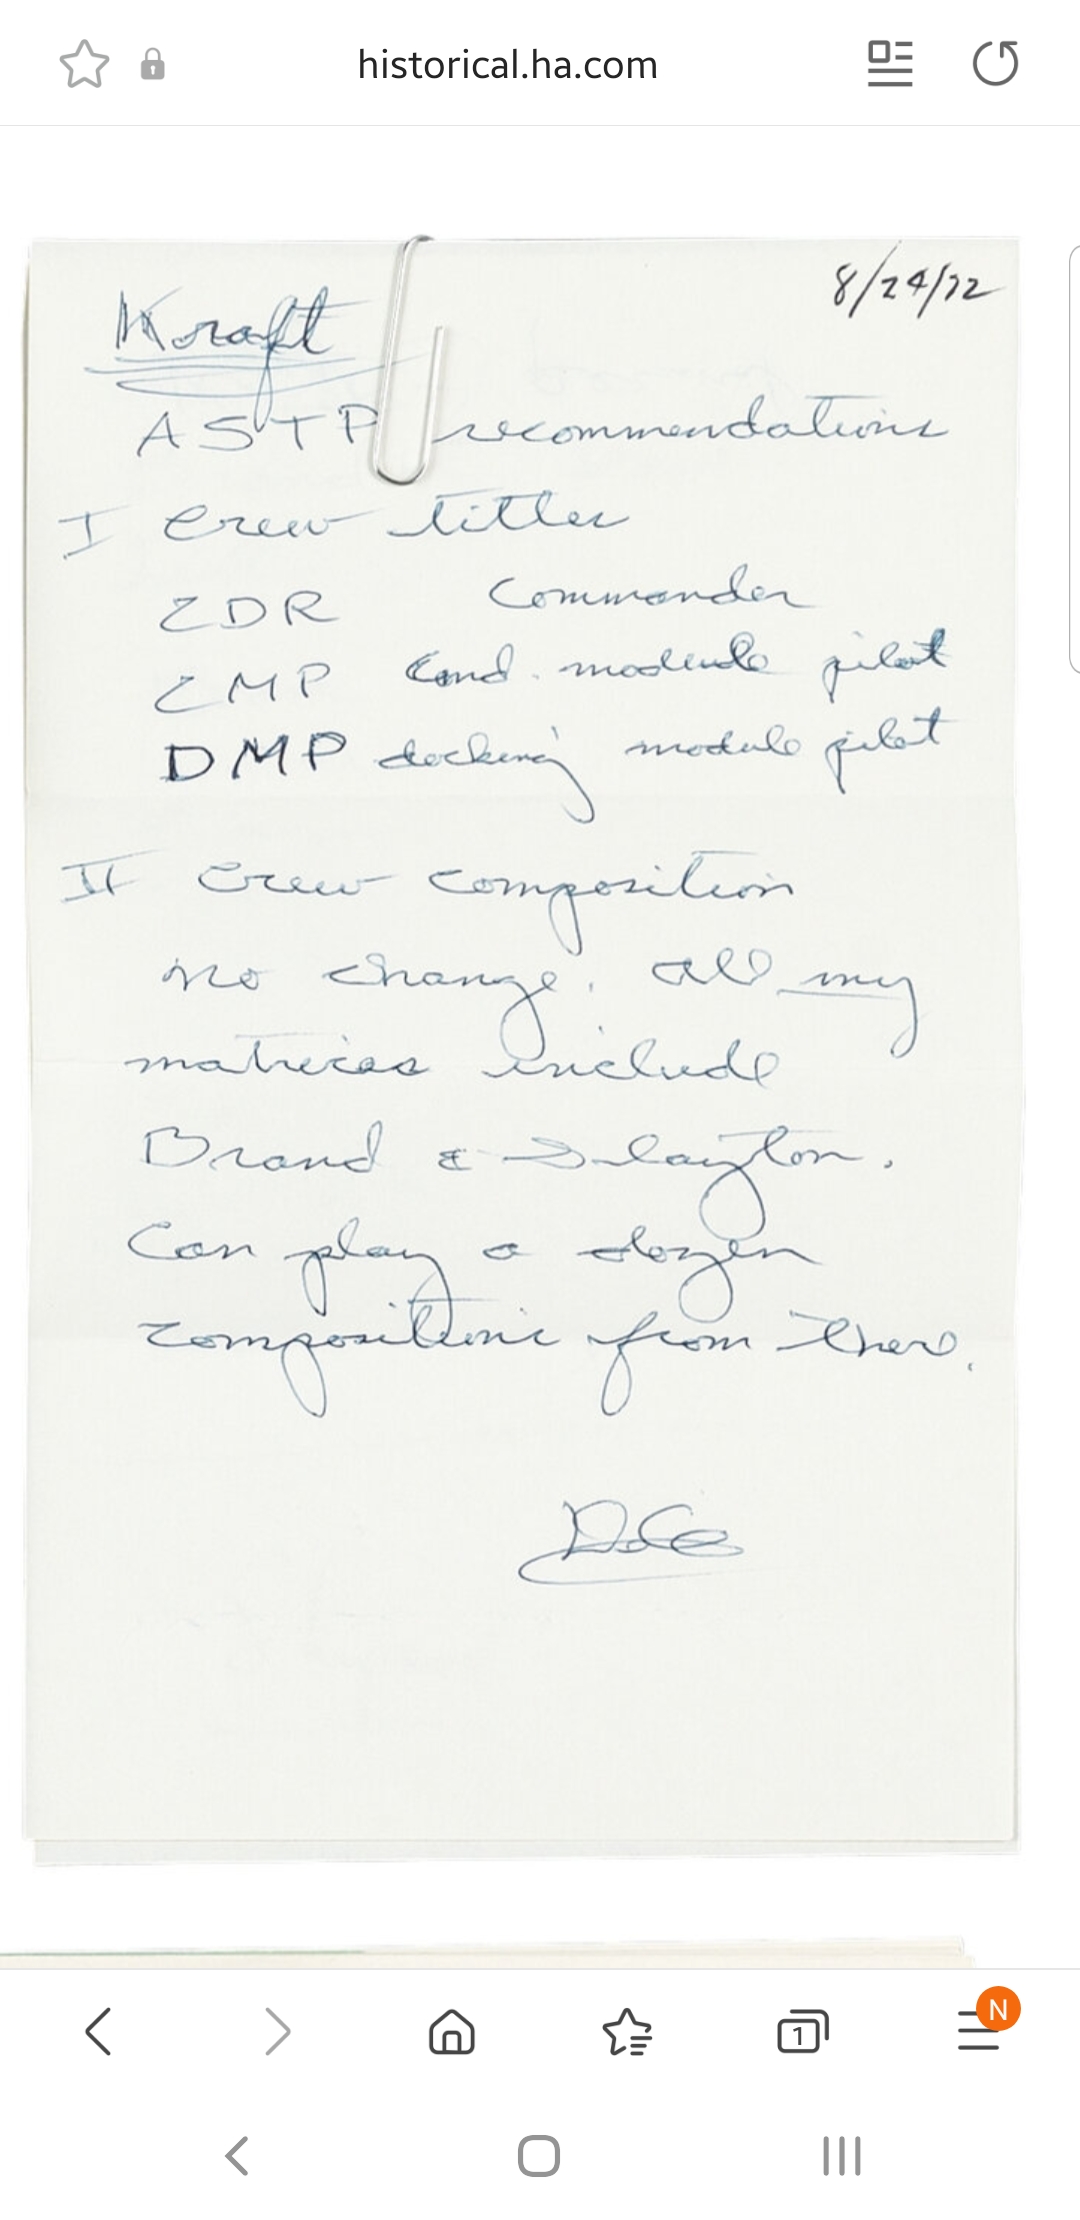 historical.ha.com
8/24/72
Kraft
ASTP recommendations
I Crew titles
CDR Commander
CMP Comd. module pilot
DMP docking module pilot
II Crew composition
no change. All my
matrices include
Brand & Slayton.
Can play a dozen
compositions from there.
1
N